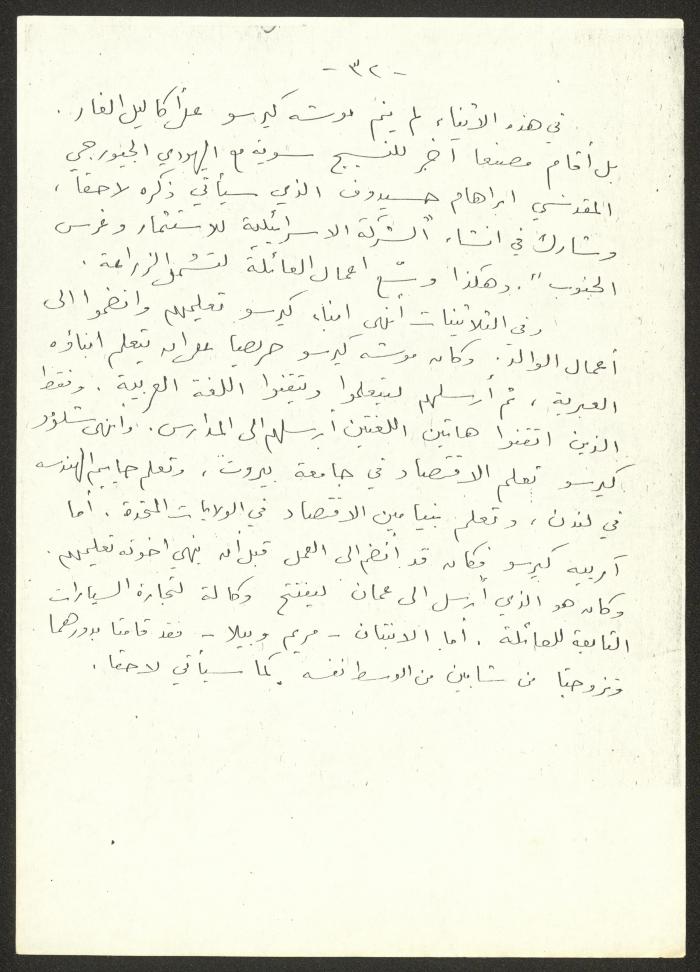 - ٣٢ -
في هذه الاثناء لم ينم موشه كيرسو على أكاليل الغار .
بل أقام مصنعا آخر للنسيج سوية مع اليهودي الجيورجي
المقدسي ابراهام حسيدوف الذي سيأتي ذكره لاحقا ،
وشارك في انشاء "الشركة الاسرائيلية للاستثمار وغرس
الجنوب" . وهكذا وسّع اعمال العائلة لتشمل الزراعة .
وفي الثلاثينات أنهى ابناء كيرسو تعليمهم وانضموا الى
أعمال الوالد . وكان موشه كيرسو حريصا على ان يتعلم ابناؤه
العبرية ، ثم أرسلهم ليتعلموا ويتقنوا اللغة العربية . وفقط
الذين اتقنوا هاتين اللغتين أرسلهم الى المدارس . وانهى شلومو
كيرسو تعلم الاقتصاد في جامعة بيروت ، وتعلم حاييم الهندسه
في لندن ، وتعلم بنيامين الاقتصاد في الولايات المتحدة . أما
آرييه كيرسو فكان قد انضم الى العمل قبل أن ينهي اخوته تعليمهم .
وكان هو الذي أرسل الى عمان ليفتتح وكالة لتجارة السيارات
التابعة للعائلة . أما الابنتان - مريم وبيلا - فقد قامتا بدورهما
وتزوجتا من شابين من الوسط نفسه كما سيأتي لاحقا .